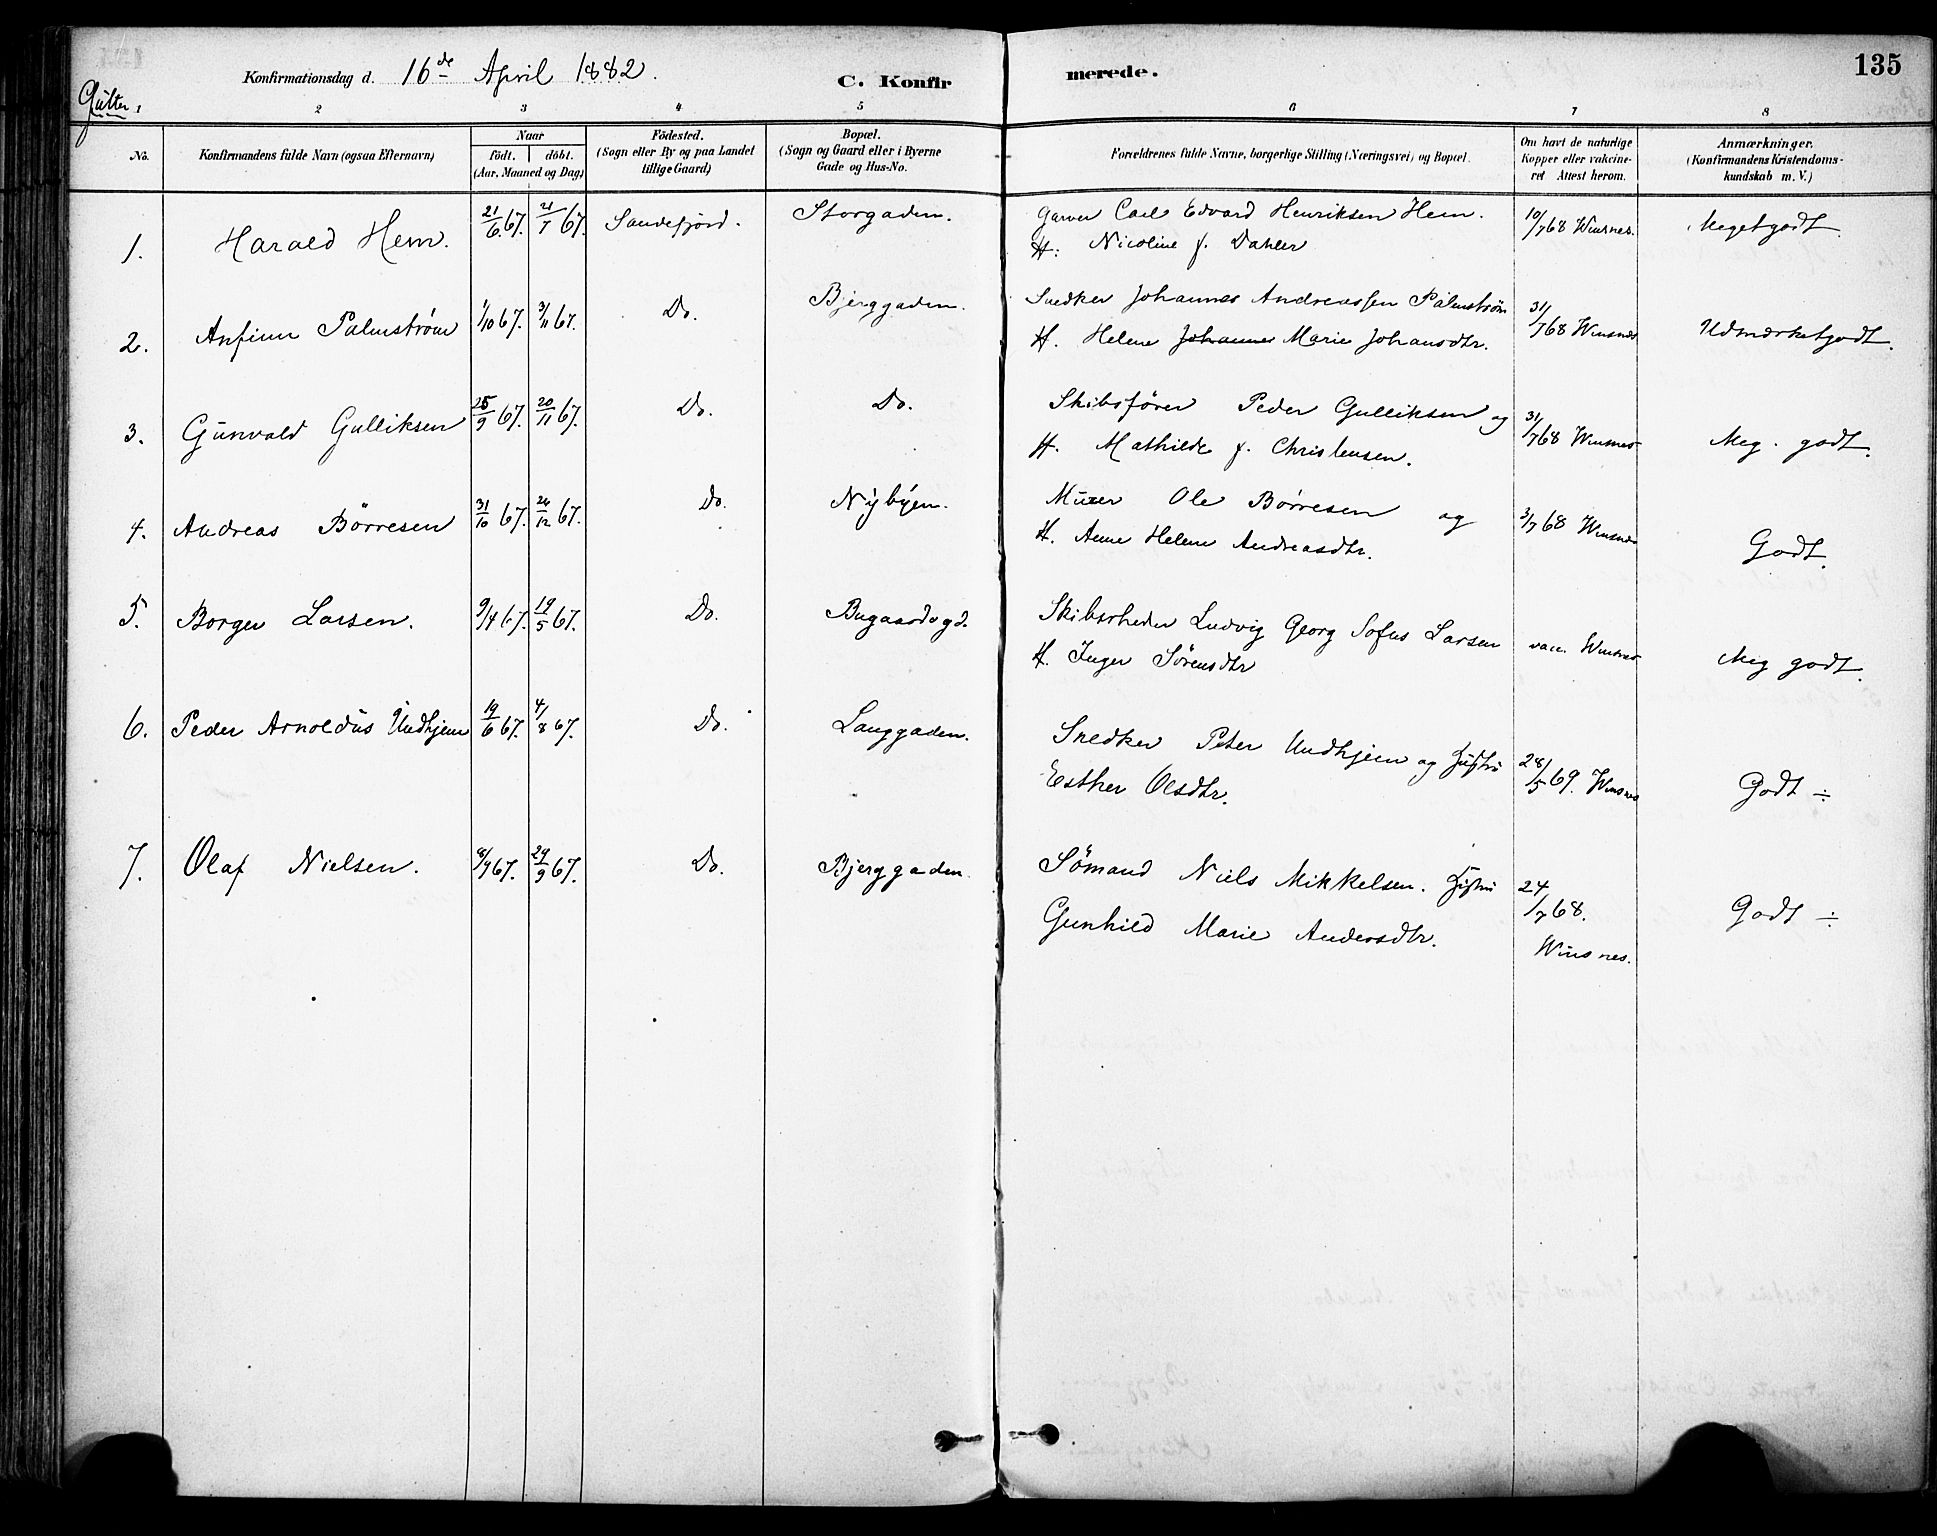 135
Konfirmationsdag d. 16de April 1882.
C. Konfirmerede.
Gutter
1 2 3 4 5 6 7 8
No. Konfirmandens fulde Navn (ogsaa Efternavn) Naar födt. döbt. (Aar, Maaned og Dag) Födested. (Sogn eller By og paa Landet tillige Gaard) Bopæl. (Sogn og Gaard eller i Byerne Gade og Hus-No. Forældrenes fulde Navne, borgerlige Stilling (Næringsvei) og Bopæl. Om havt de naturlige Kopper eller vakcineret Attest herom. Anmærkninger. (Konfirmandens Kristendomskundskab m. V.)
1. Harald Hem. 21/6 67. 21/7 67. Sandefjord. Storgaden. Garver Carl Edvard Henriksen Hem. 10/7 68 Winsnes. Megetgodt.
H. Nicoline f. Dahler
2. Anfinn Palmström 1/10 67. 3/11 67. Do. Bjerggaden. Snedker Johannes Andreassen Palmström 31/7 68 Winsnes Udmærketgodt.
H. Helene Johannes Marie Johansdtr.
3. Gunvald Gulliksen 25/9 67. 20/11 67. Do. Do. Skibsfører Peder Gulliksen og 31/7 68 Winsnes Meg. godt.
H. Mathilde f. Christensen.
4. Andreas Börresen 31/10 67. 26/12 67. Do. Nybyen. Murer Ole Börresen og 3/7 68 Winsnes Godt.
H. Anne Helene Andreasdtr.
5. Borger Larsen. 9/4 67. 19/5 67. Do. Bugaardsgd. Skibsrheder Ludvig Georg Sofus Larsen vacc. Winsnes Meg godt.
H. Inger Sörensdtr
6. Peder Arnoldus Undhjem 19/6 67. 4/8 67. Do. Langgaden. Snedker Peter Undhjem og Hustru 28/5 69. Winsnes Godt ÷
Esther Olsdtr.
7. Olaf Nielsen. 8/7 67. 29/9 67. Do. Bjerggaden. Sömand Niels Mikkelsen. Hustru 24/7 68. Winsnes. Godt ÷
Gunhild Marie Andersdtr.